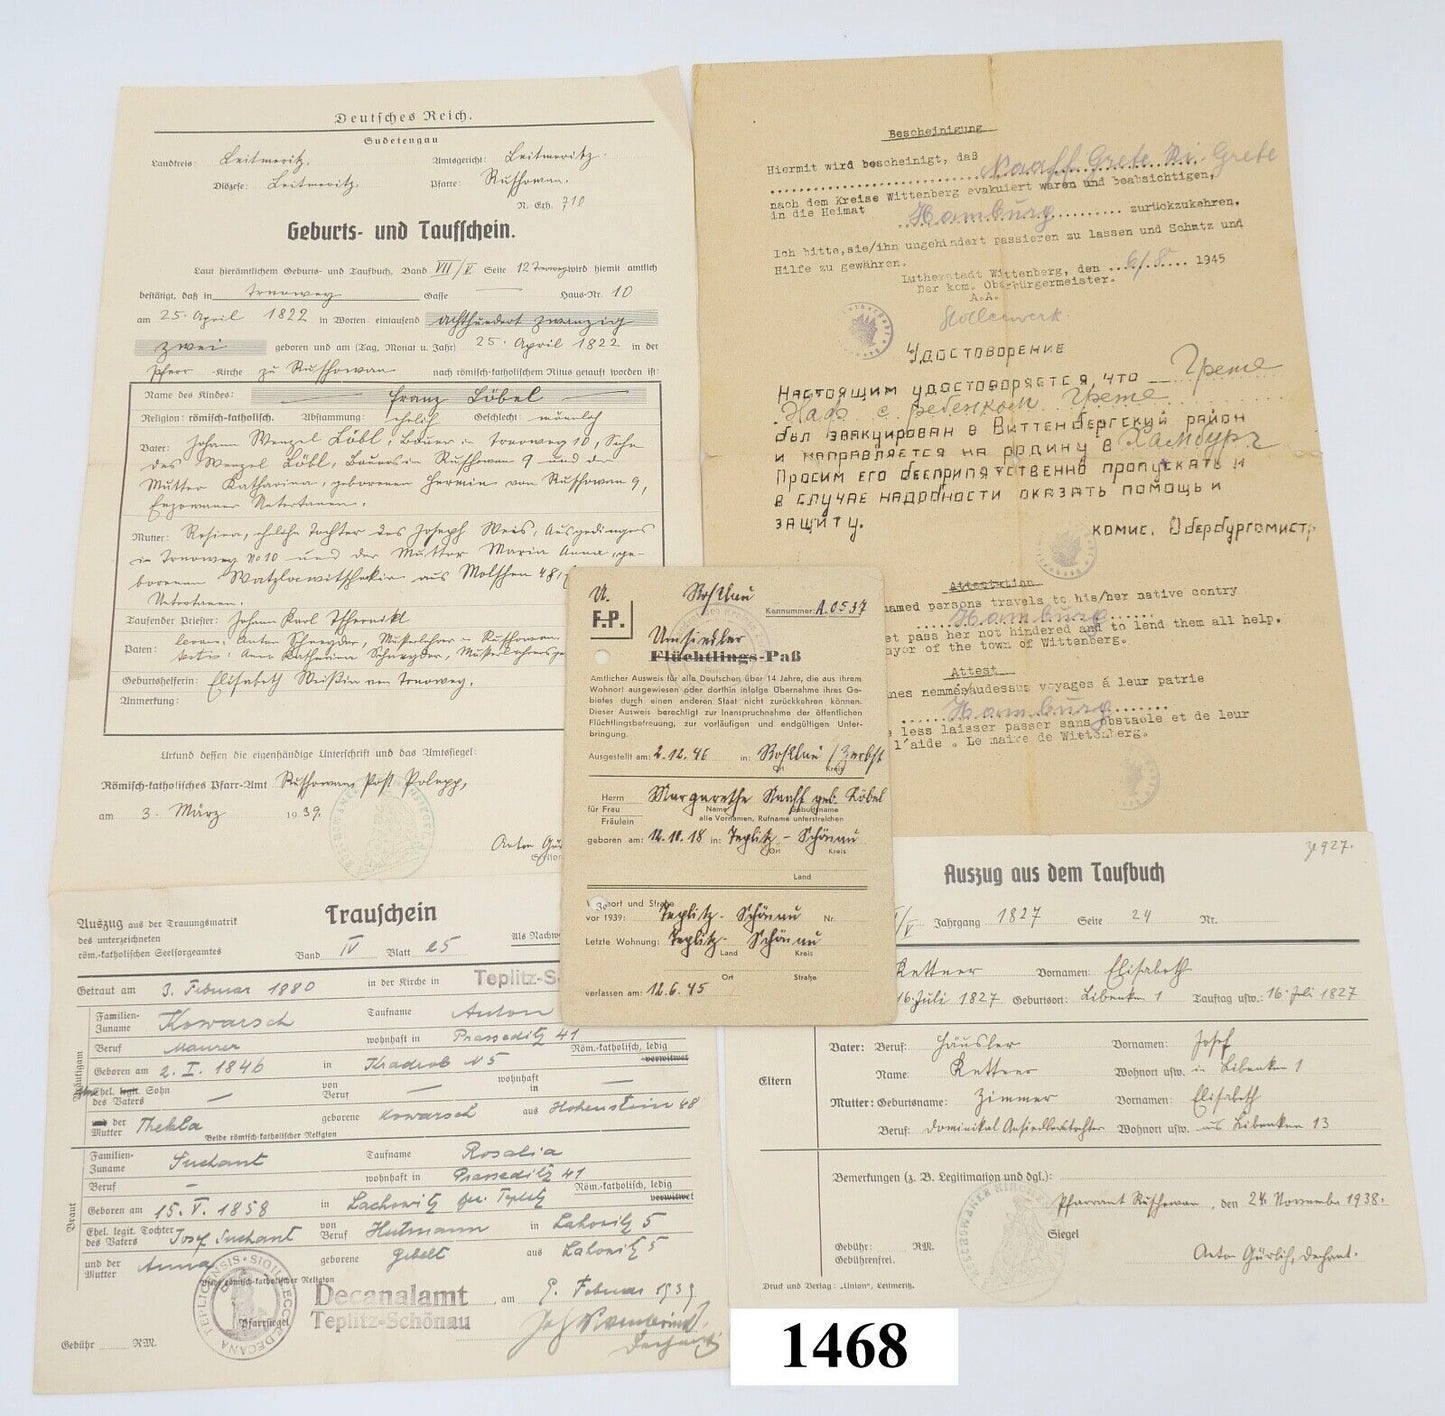 Deutsches Reich.
Sudetengau
Landkreis: Leitmeritz. Amtsgericht: Leitmeritz.
Diözese: Leitmeritz. Pfarre: Ruschowan.
N. Exh. 710
Geburts- und Taufschein.
Laut hierämtlichem Geburts- und Taufbuch, Band VII/V Seite 12 Tronowey wird hiemit amtlich
bestätigt, daß in Tronowey Gasse — Haus-Nr. 10
am 25. April 1822 in Worten eintausend achthundert zwanzig
zwei geboren und am (Tag, Monat u. Jahr) 25. April 1822 in der
Pfarr -Kirche zu Ruschowan nach römisch-katholischem Ritus getauft worden ist:
Name des Kindes: Franz Löbel
Religion: römisch-katholisch. Abstammung: ehelich Geschlecht: männlich
Vater: Johann Wenzel Löbl, Bauer in Tronowey 10, Sohn
des Wenzel Löbl, Bauers in Ruschowan 9 und der
Mutter Katharina, geborenen Hermin von Ruschowan 9,
Mutter: Rosina, eheliche Tochter des Joseph Weis, Ausgedingers
in Tronowey No 10 und der Mutter Maria Anna, ge-
borenen aus 48,
Taufender Priester: Johann Karl
Paten:
Geburtshelferin: Elisabeth von Tronowey.
Anmerkung:
Urkund dessen die eigenhändige Unterschrift und das Amtssiegel:
Römisch-katholisches Pfarr-Amt Ruschowan Post Polepp,
am 3. März 1939.
Bescheinigung
Hiermit wird bescheinigt, daß Naaff Grete Ki. Grete
nach dem Kreise Wittenberg evakuiert waren und beabsichtigen,
in die Heimat Hamburg zurückzukehren.
Ich bitte,sie/ihn ungehindert passieren zu lassen und Schutz und
Hilfe zu gewähren.
Lutherstadt Wittenberg, den 6/8 1945
Der kom. Oberbürgermeister.
A.A.
Удостоворение
Настоящим удостоворяется, что Грете
Наф с ребенком Грете
был эвакуирован в Виттенбергский район
и направляется на родину в Хамбург
Просим его бесприпятственно пропускать и
в случае надобности оказать помощь и
защиту.
комис. Обербургомистр
Attestation
named persons travels to his/her native contry
Hamburg
et pass her not hindered and to lend them all help.
ayor of the town of Wittenberg.
Attest
nes nemmés audessus voyages á leur patrie
Hamburg
less laisser passer sans obstacle et de leur
l'aide . Le maire de Wittenberg.
U.
F.P.
Roßlau
Kennummer: A.0537
Umsiedler
Flüchtlings-Paß
Amtlicher Ausweis für alle Deutschen über 14 Jahre, die aus ihrem
Wohnort ausgewiesen oder dorthin infolge Übernahme ihres Ge-
bietes durch einen anderen Staat nicht zurückkehren können.
Dieser Ausweis berechtigt zur Inanspruchnahme der öffentlichen
Flüchtlingsbetreuung, zur vorläufigen und endgültigen Unter-
bringung.
Ausgestellt am: 2.12.46 in: Roßlau / Zerbst
Ort Kreis
Herrn
für Frau
Fräulein
Margarethe Naaff geb. Löbel
Name Geburtsname
alle Vornamen, Rufname unterstreichen
geboren am: 12.10.18 in: Teplitz - Schönau
Ort Kreis
Land
Wohnort und Straße
vor 1939: Teplitz - Schönau Nr.
Letzte Wohnung: Teplitz - Schönau
Land Kreis
Ort Straße
verlassen am: 12.6.45
Trauschein
Auszug aus der Trauungsmatrik
des unterzeichneten
röm.-katholischen Seelsorgeamtes
Band IV Blatt 25
Als Nachw
Getraut am 3. Februar 1880 in der Kirche in Teplitz-S
Bräutigam
Familien-
Zuname Kowarsch Taufname Anton
Beruf Maurer wohnhaft in Prasseditz 41
Geboren am 2. I. 1846 in Kradrob N 5 Röm.-katholisch, ledig
verwitwet
Ehel. legit. Sohn
des Vaters — von
Beruf — wohnhaft
in —
und der
Mutter Thekla geborene Kowarsch aus Hohenstein 48
Beide römisch-katholischer Religion
Braut
Familien-
Zuname Suchant Taufname Rosalia
Beruf — wohnhaft in Prasseditz 41
Geboren am 15. V. 1858 in Lachowitz Röm.-katholisch, ledig
verwitwet
Ehel. legit. Tochter
des Vaters Josef Suchant von
Beruf Hutmann in Lahowitz 5
und der
Mutter Anna geborene Gebelt aus Lahowitz 5
Beide römisch-katholischer Religion
Pfarrsiegel
Decanalamt
Teplitz-Schönau
, am 9. Februar 1939
Gebühr RM.
Zl 927.
Auszug aus dem Taufbuch
/V Jahrgang 1827 Seite 24 Nr.
Kettner Vornamen: Elisabeth
16. Juli 1827 Geburtsort: Libenken 1 Tauftag usw.: 16. Juli 1827
Eltern
Vater: Beruf: Häusler Vornamen: Josef
Name: Kettner Wohnort usw. in Libenken 1
Mutter: Geburtsname: Zimmer Vornamen: Elisabeth
Beruf: Dominikal Ansiedlerstochter Wohnort usw. aus Libenken 13
Bemerkungen (z. B. Legitimation und dgl.):
Pfarramt Ruschowan , den 24. November 1938.
Siegel
Gebühr: RM.
Gebührenfrei.
Anton Gürlich, Dechant.
Druck und Verlag: „Union", Leitmeritz.
1468